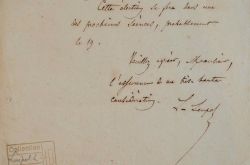 Cette élection se fera dans une
des prochaines séances, probablement
le 19.
Veuillez agréer, Monsieur,
l'assurance de ma très haute
considération.
Collection